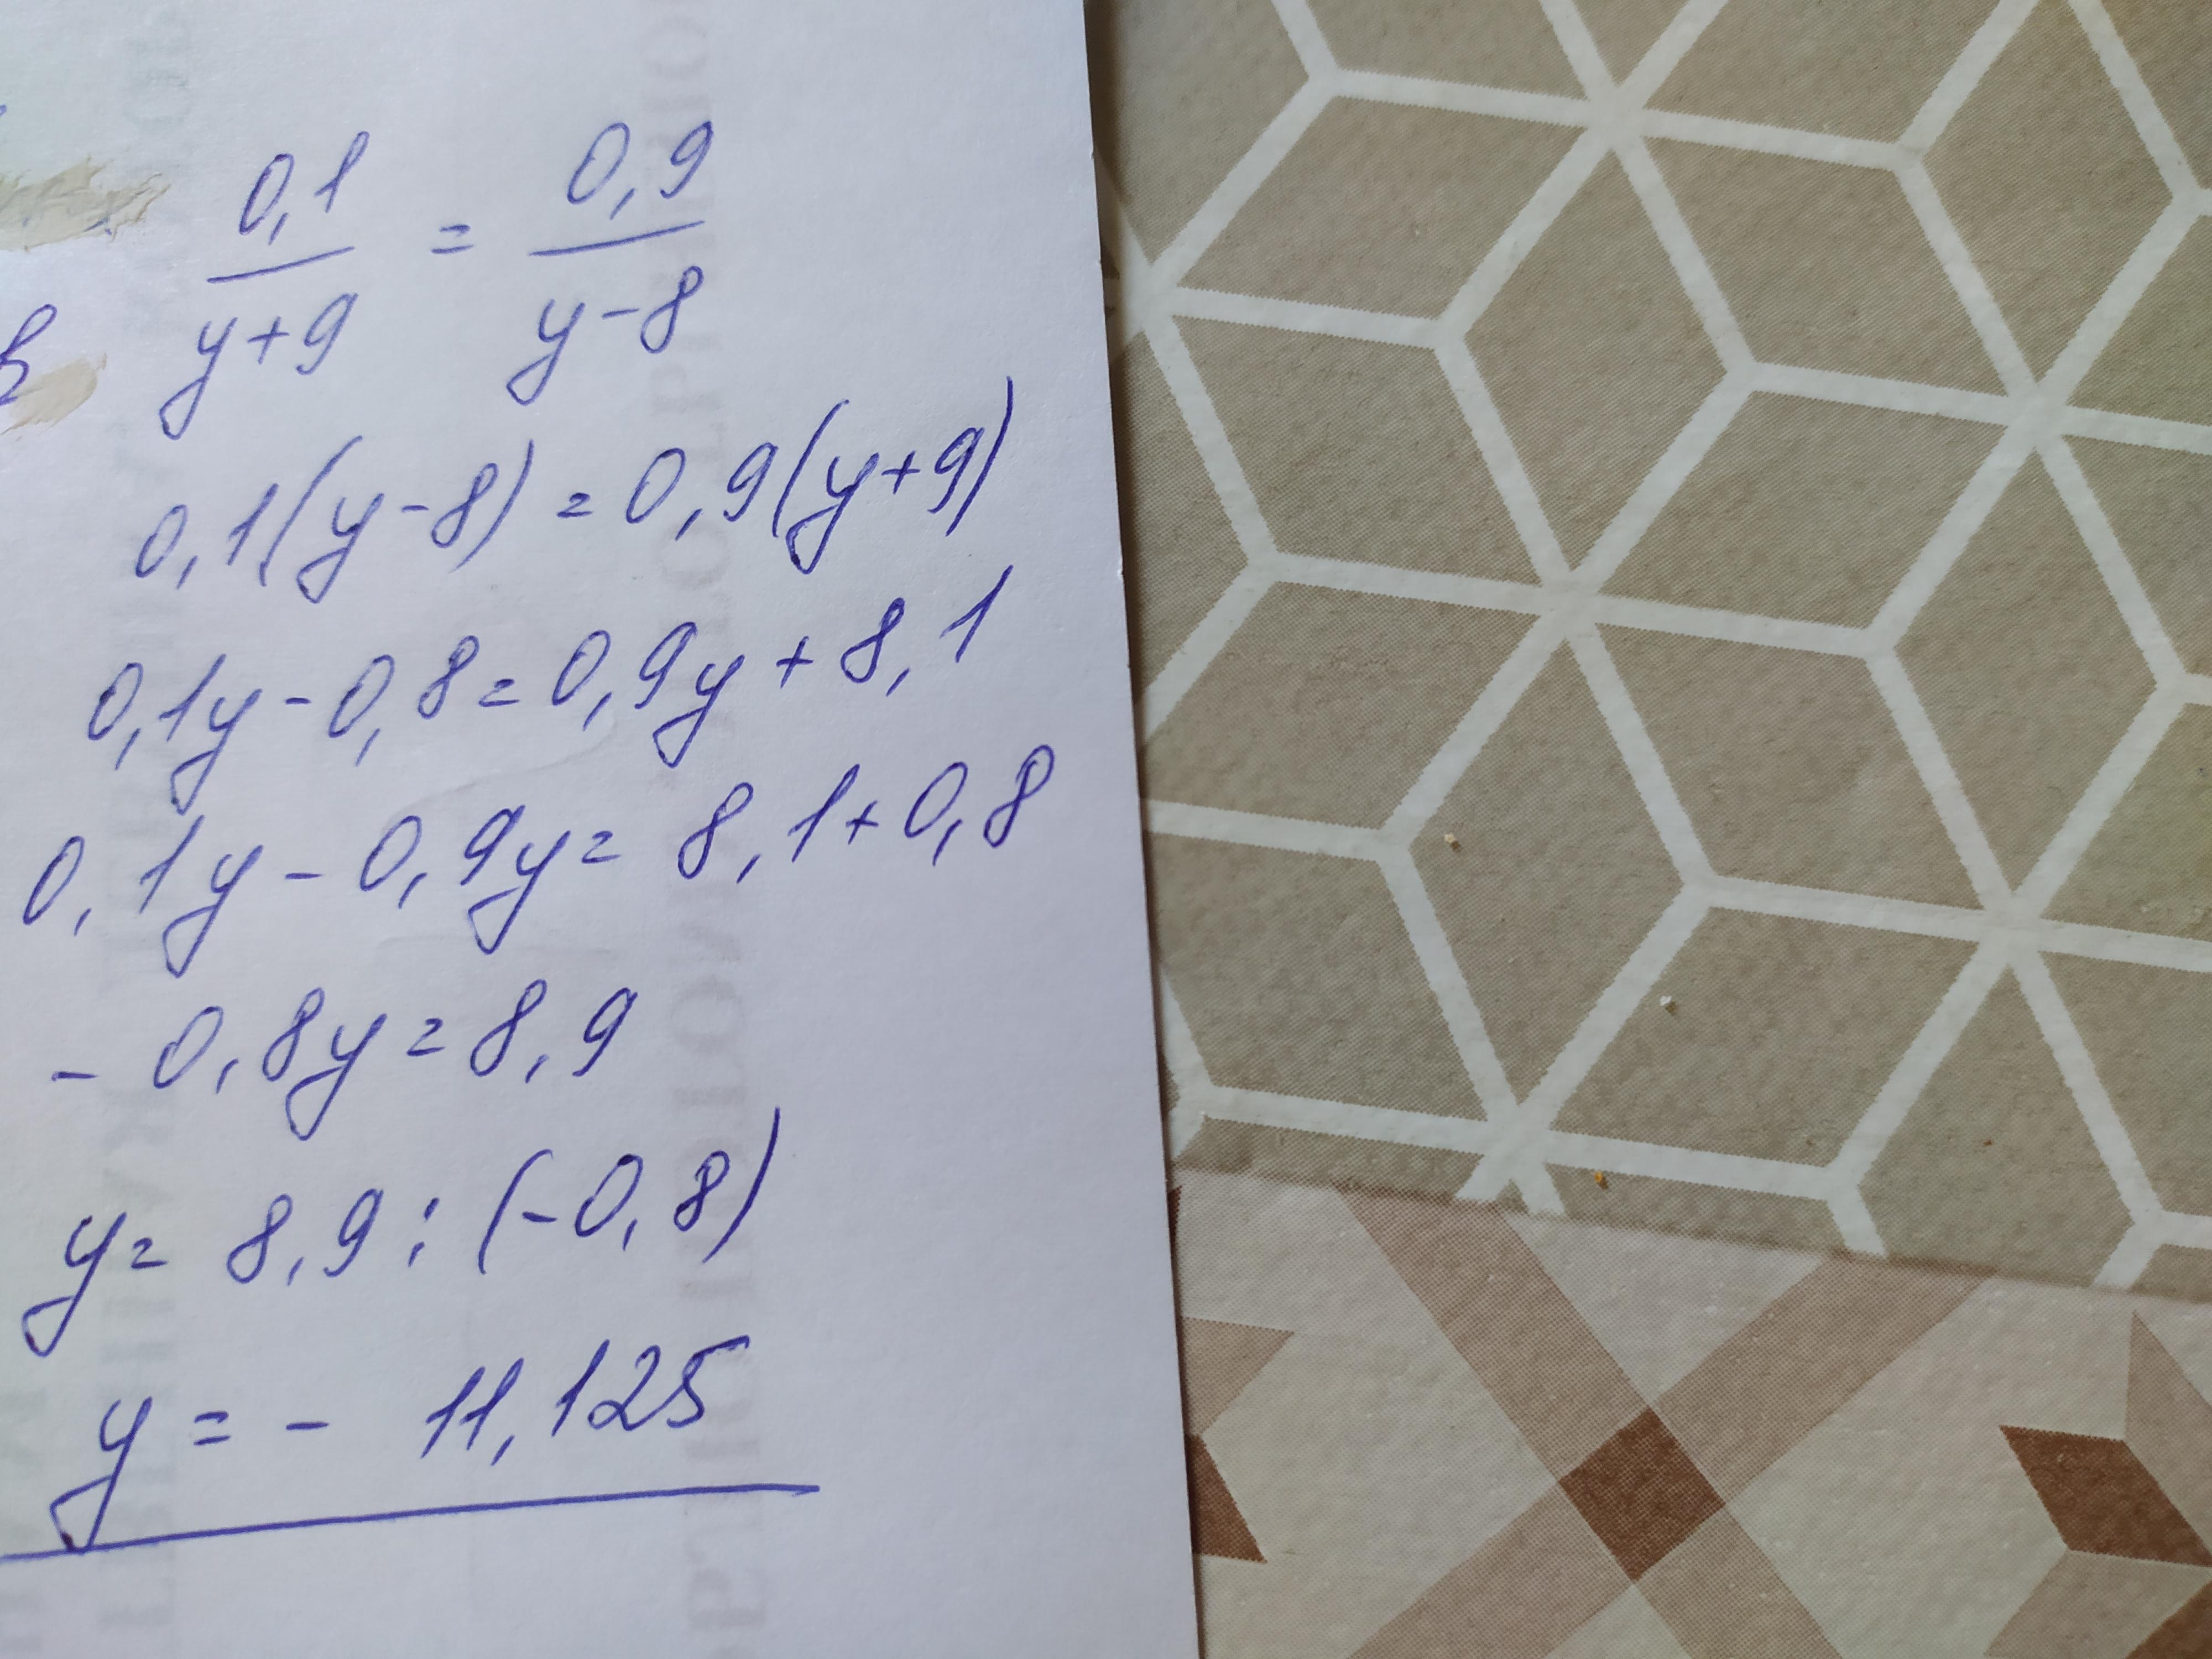 0,1/(y+9) = 0,9/(y-8)
0,1(y-8)=0,9(y+9)
0,1y-0,8=0,9y+8,1
0,1y-0,9y=8,1+0,8
-0,8y=8,9
y=8,9:(-0,8)
y=-11,125